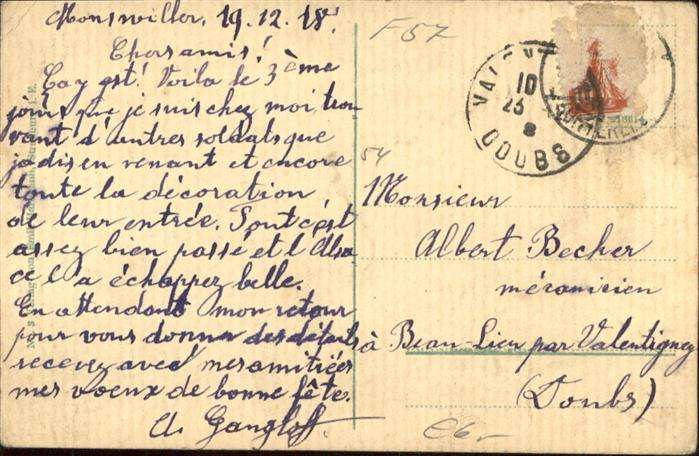 Monswiller, 19.12.18.
Chers amis!
Ça y est! Voila le 3ème
jours que je suis chez moi, trou
vant d'autres soldats que
jadis en venant et encore
toute la décoration
de leur entrée. Tout c'est
assez bien passé et l'Alsa
ce l'a échappez belle.
En attendant mon retour
pour vous donner des détails
recevez avec mes amitiées
mes voeux de bonne fête.
A. Gangloff.
F57
VALEN
10
23
8
DOUBS
54
Monsieur
Albert Becher
mécanicien
à Beau-Lieu par Valentigney
(Doubs)
C6-